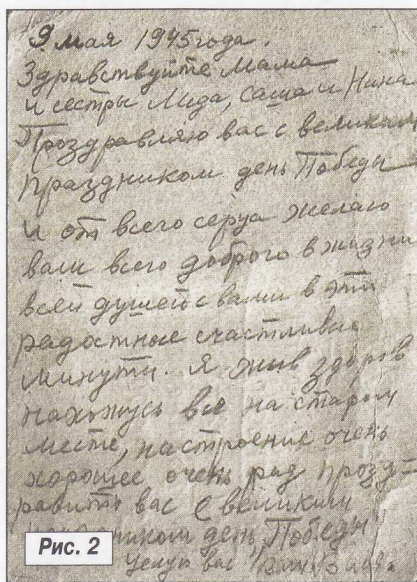 9 мая 1945 года.
Здравствуйте Мама
и сестры Лида, Саша и Нина
Проздравляю вас с великим
праздником день Победы
и от всего серца желаю
вам всего доброго в жизни
всей душей с вами в эти
радостные счастливые
минуты. Я жив здоров
нахожусь все на старом
месте, настроение очень
хорошее очень рад прозд-
равить вас с великим
праздником день Победы
Целую вас
Рис. 2